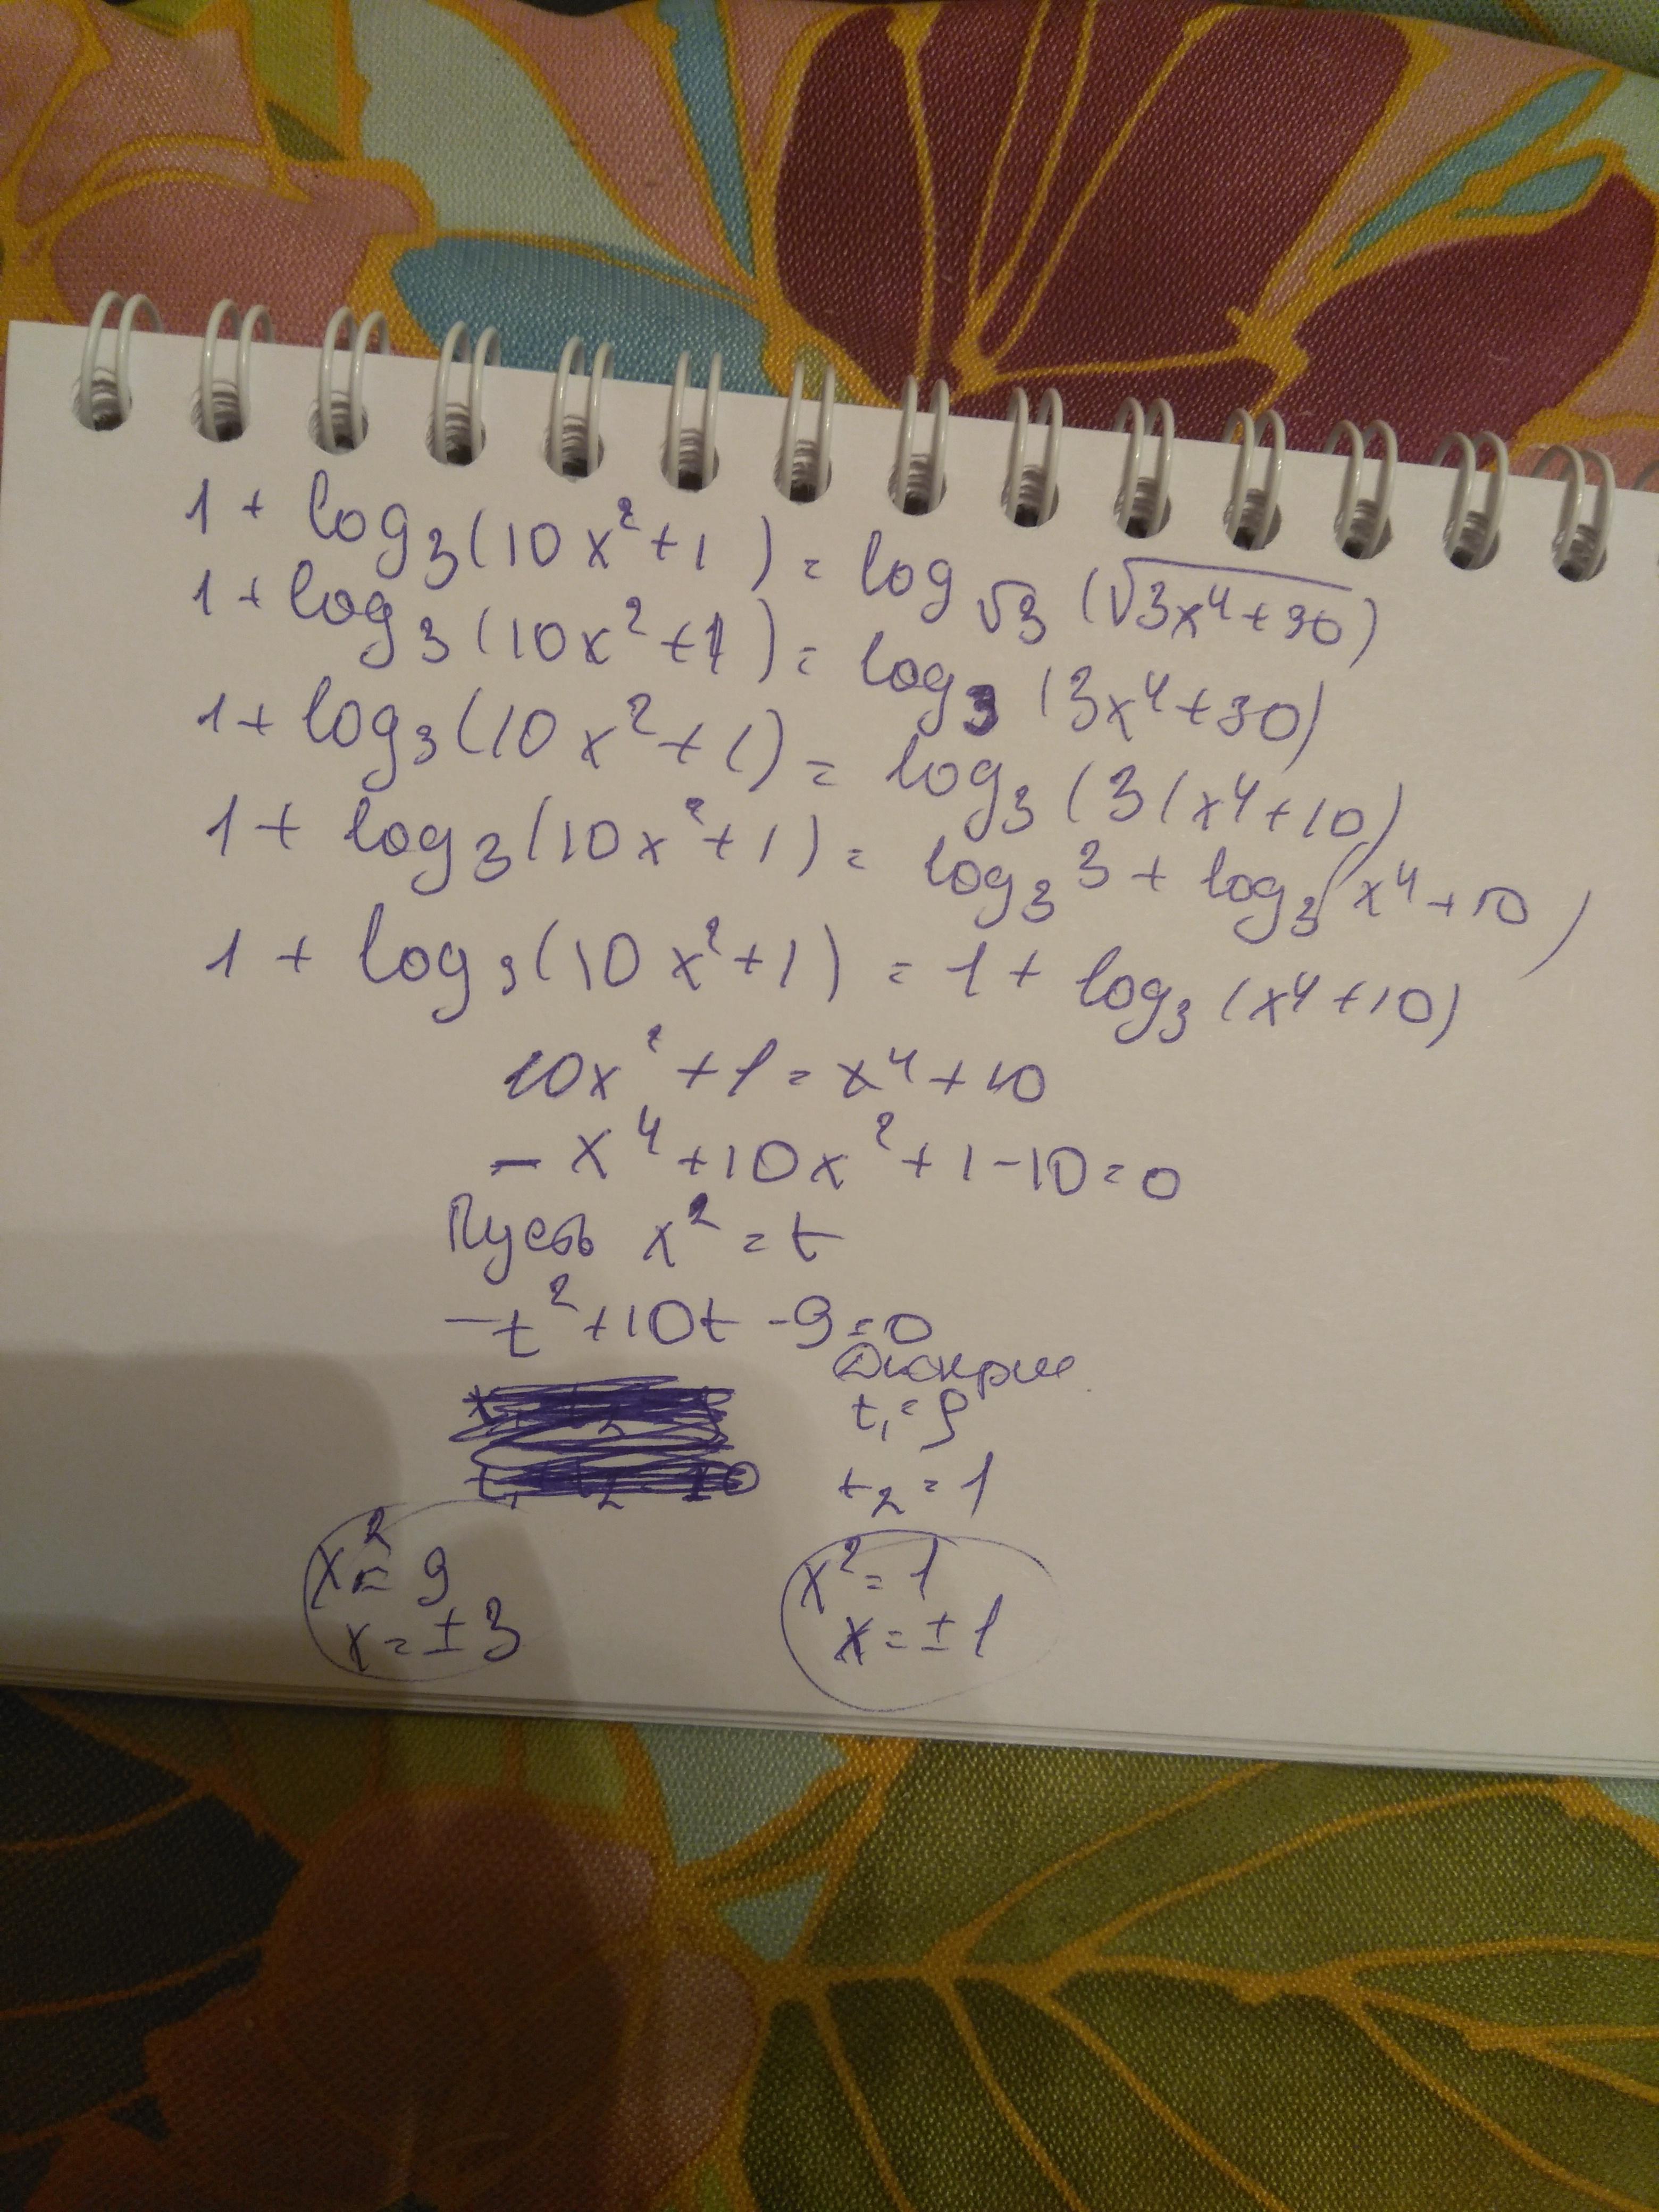 1 + log₃(10x²+1) = log√3 (√3x⁴+30)
1 + log₃(10x²+1) = log₃ (3x⁴+30)
1 + log₃(10x²+1) = log₃ (3(x⁴+10)
1 + log₃(10x²+1) = log₃3 + log₃(x⁴+10)
1 + log₃(10x²+1) = 1 + log₃(x⁴+10)
10x²+1 = x⁴+10
-x⁴+10x²+1-10=0
Пусть x² = t
-t²+10t-9=0
Дискрим
t₁=9
t₂=1
x²=9
x=±3
x²=1
x=±1